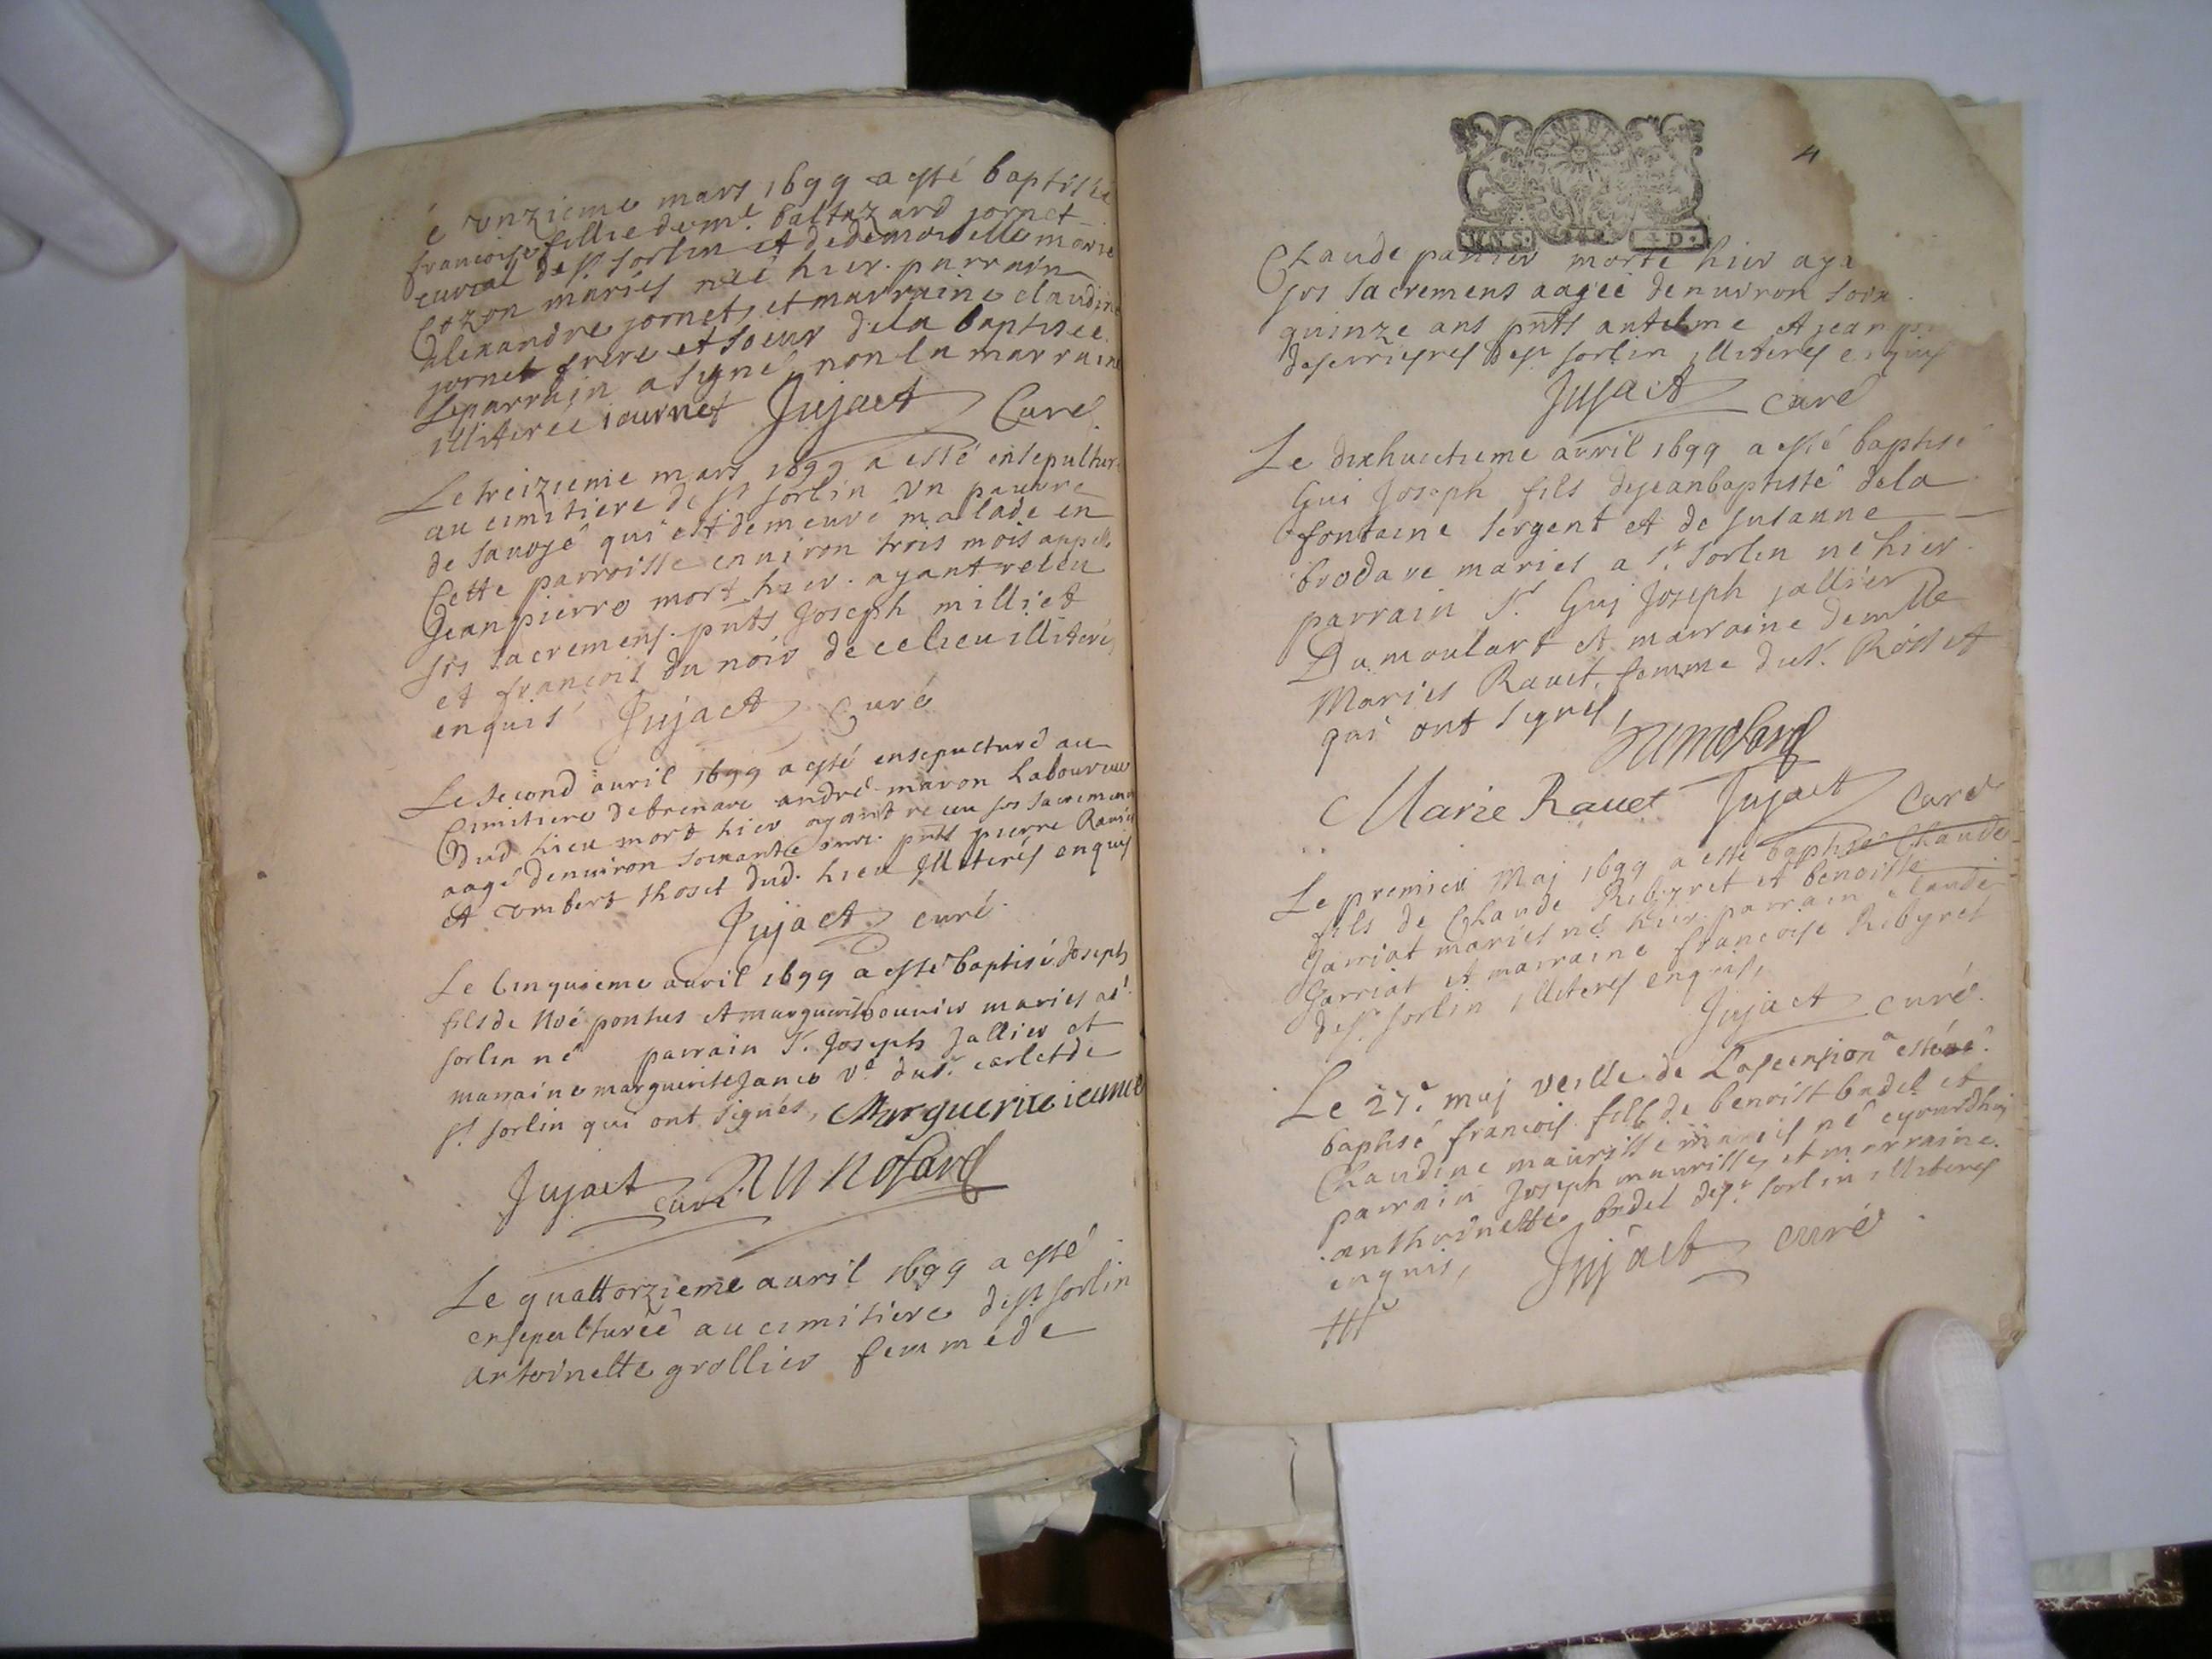 é vnzieme mars 1699 a esté baptisée
francoise fillie de mr. baltazard jornet
curial de st. sorlin et de demoiselle marie
Cozon mariés née hier. parrain
alexandre jornet, et marraine claudine
jornet frere et soeur dela baptisee.
Le parrain a signé, non la marraine
illiterée journet Jujact Curé.
Le treizieme mars 1699 a esté ensepulturé
au cimitiere de st sorlin vn pauvre
de savoye qui est demeuré malade en
Cette parroisse enuiron trois mois appellé
Jean pierre mort hier. ayant receu
ses sacremens. pnts Joseph milliet
et françois du noir de ce lieu illiteré,
enquis Jujact Curé
Le second auril 1699 a esté ensepulturé au
Cimitiere de trenave andré maron Laboureur
dud lieu mort hier ayant receu ses sacremens
aagé denuiron soixante ans. pnts pierre Ravier
et vmbert thoset dud. lieu Illiterés enquis
Jujact curé.
Le Cinquieme auril 1699 a esté baptisé Joseph
fils de Noé ponthus et marguerite bouvier mariés a st.
sorlin né parrain Sr. Joseph Jallier et
marraine marguerite Janeo ve. du sr. carlet de
st. sorlin qui ont signés, Marguerite ieunee
Jujact curé.
Le quattorzieme auril 1699 a esté
ensepulturéé au cimitiere de st. sorlin
antoinette grollier femme de
4
Claude pannier morte hier aya
ses sacremens aagée denuiron soix
quinze ans pnts antelme et jean
de st. sorlin illiteres enquis
Jujact curé
Le dixhuictieme avril 1699 a esté baptisé
Gui Joseph fils de jean baptisté dela
fontaine sergent et de susanne
brodave mariés a st. sorlin né hier.
parrain Sr. Guy Joseph jallier
Dumoulart et marraine demlle
Maries Rauet, femme du sr. Rosset
qui ont signés,
Marie Rauet Jujact Curé
Le premier Maj 1699 a esté baptisé Claude
fils de Claude Ribyret et benoiste
Jarriat mariés né hier parrain claude
Jarriat et marraine françoise Ribyret
de st. sorlin illiteres enquis,
Jujact curé.
Le 27.e maj veille de L'ascension a esté
baptisé françois fils de benoist bndel et
Claudine maurisse mariés né ejourdhuj
parrain Joseph maurisse, et marraine.
anthoinette bndel de st. sorlin illiteres
enquis, Jujact curé